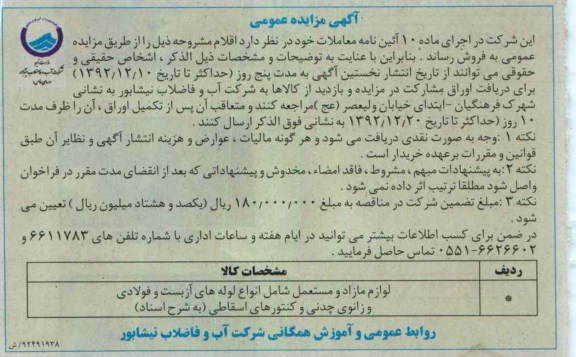 آگهی مزایده عمومی
این شرکت در اجرای ماده ۱۰ آئین نامه معاملات خود در نظر دارد اقلام مشروحه ذیل را از طریق مزایده
عمومی به فروش رساند . بنابراین با عنایت به توضیحات و مشخصات ذیل الذکر ، اشخاص حقیقی و
حقوقی می توانند از تاریخ انتشار نخستین آگهی به مدت پنج روز (حداکثر تا تاریخ ۱۳۹۲/۱۲/۱۰)
برای دریافت اوراق مشارکت در مزایده و بازدید از کالاها به شرکت آب و فاضلاب نیشابور به نشانی
شهرک فرهنگیان -ابتدای خیابان ولیعصر (عج )مراجعه کنند و متعاقب آن پس از تکمیل اوراق ، آن را ظرف مدت
۱۰ روز (حداکثر تا تاریخ ۱۳۹۲/۱۲/۲۰ به نشانی فوق الذکر ارسال کنند .
نکته ۱ :وجه به صورت نقدی دریافت می شود و هر گونه مالیات ، عوارض و هزینه انتشار آگهی و نظایر آن طبق
قوانین و مقررات برعهده خریدار است .
نکته ۲ :به پیشنهادات مبهم ، مشروط ، فاقد امضاء ، مخدوش و پیشنهاداتی که بعد از انقضای مدت مقرر در فراخوان
واصل شود مطلقا ترتیب اثر داده نمی شود .
نکته ۳ :مبلغ تضمین شرکت در مناقصه به مبلغ ۱۸۰/۰۰۰/۰۰۰ ریال (یکصد و هشتاد میلیون ریال ) تعیین می
شود .
در ضمن برای کسب اطلاعات بیشتر می توانید در ایام هفته و ساعات اداری با شماره تلفن های ۶۶۱۱۷۸۳ و
۰۵۵۱-۶۶۲۶۶۰۲ تماس حاصل فرمایید .
ردیف مشخصات کالا
* لوازم مازاد و مستعمل شامل انواع لوله های آزبست و فولادی
و زانوی چدنی و کنتورهای اسقاطی (به شرح اسناد)
روابط عمومی و آموزش همگانی شرکت آب و فاضلاب نیشابور
۹۲۴۹۱۹۳۸/ش